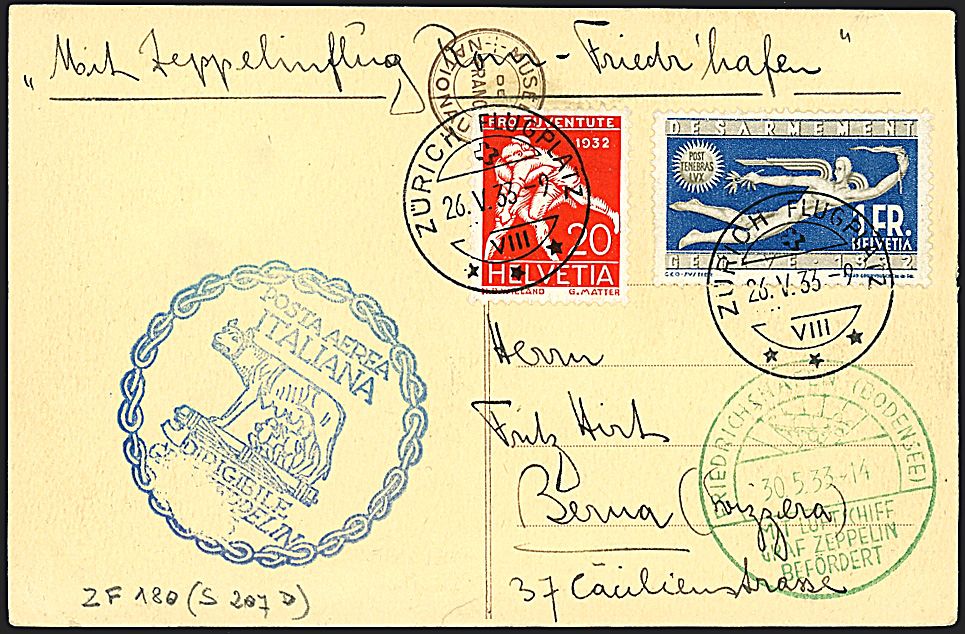 "Mit Zeppelinflug Rom - Friedr'hafen"
MUSE
PRO JUVENTUTE
1932
20
HELVETIA
G. MATTER
DÉSARMEMENT
POST
TENEBRAS
LVX
1 FR.
HELVETIA
GENÈVE 1932
ZÜRICH FLUGPLATZ
26.V.33-9
VIII
ZÜRICH FLUGPLATZ
26.V.33-9
VIII
POSTA AEREA
ITALIANA
DIRIGIBILE
ZEPPELIN
Herrn
Fritz Hirt
Berna (Svizzera)
37 Cäcilienstrasse
FRIEDRICHSHAFEN (BODENSEE)
30.5.33-14
MIT LUFTSCHIFF
GRAF ZEPPELIN
BEFÖRDERT
ZF 180 (S 207 D)